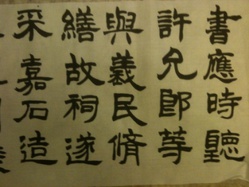 書應時聽
許允郎
與義民脩
繕故祠遂
采嘉石造